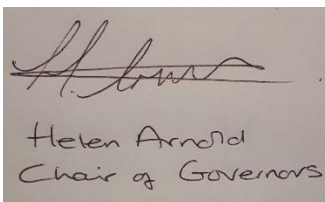 Helen Arnold
Chair of Governors